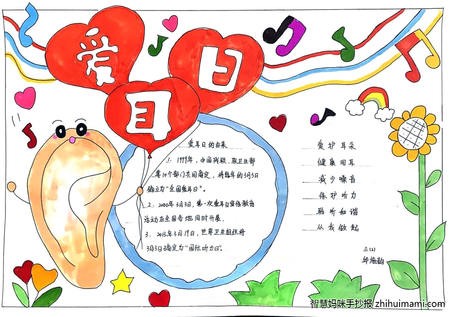 爱耳日
爱耳日的由来
1、1998年，中国残联、卫生部
等10个部门共同商定，将每年的3月3日
确定为"全国爱耳日"。
2、2000年3月3日，第一次爱耳日宣传教育
活动在全国各地同时开展。
3、2013年3月19日，世界卫生组织将
3月3日确定为"国际听力日"。
爱护耳朵
健康用耳
减少噪音
保护听力
聆听和谐
从我做起
智慧妈咪手抄报 zhihuimami.com